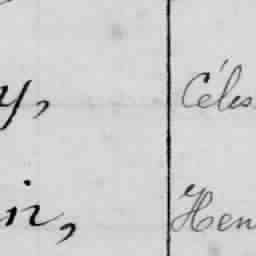 y, Céles
in, Hen